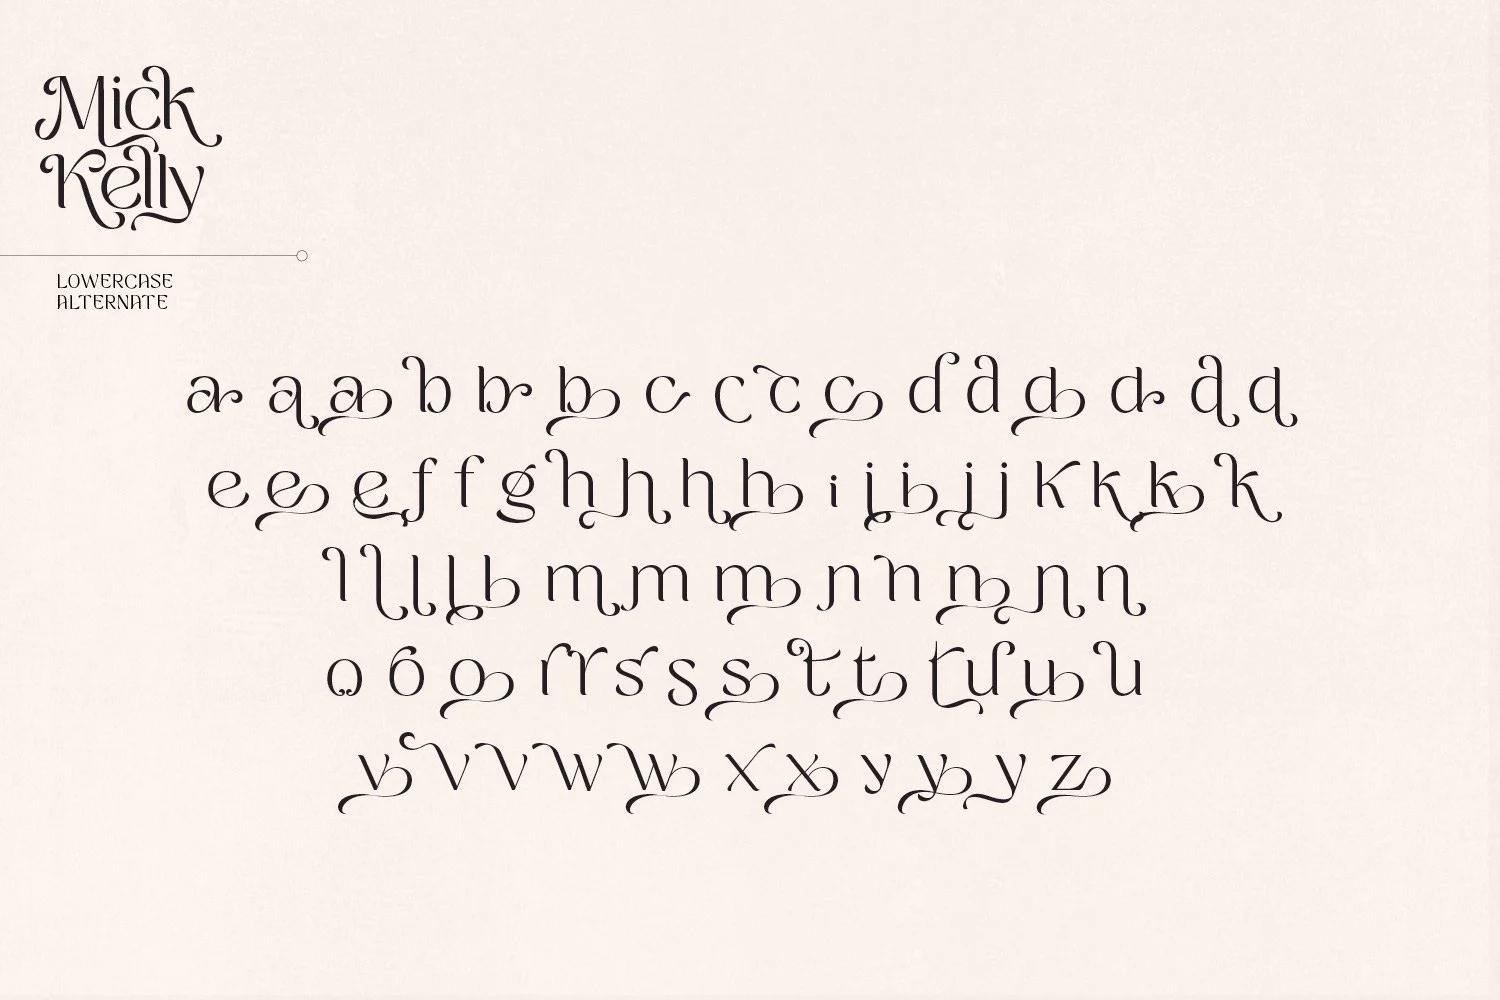 Mick
Kelly
LOWERCASE
ALTERNATE
a a a b b b c c c c d d d d d d
e e e f f g h h h h i j i j j k k k k
l l l l l m m m n n n n n
o o o r r s s s t t t u u u
v v v w w x x y y y z